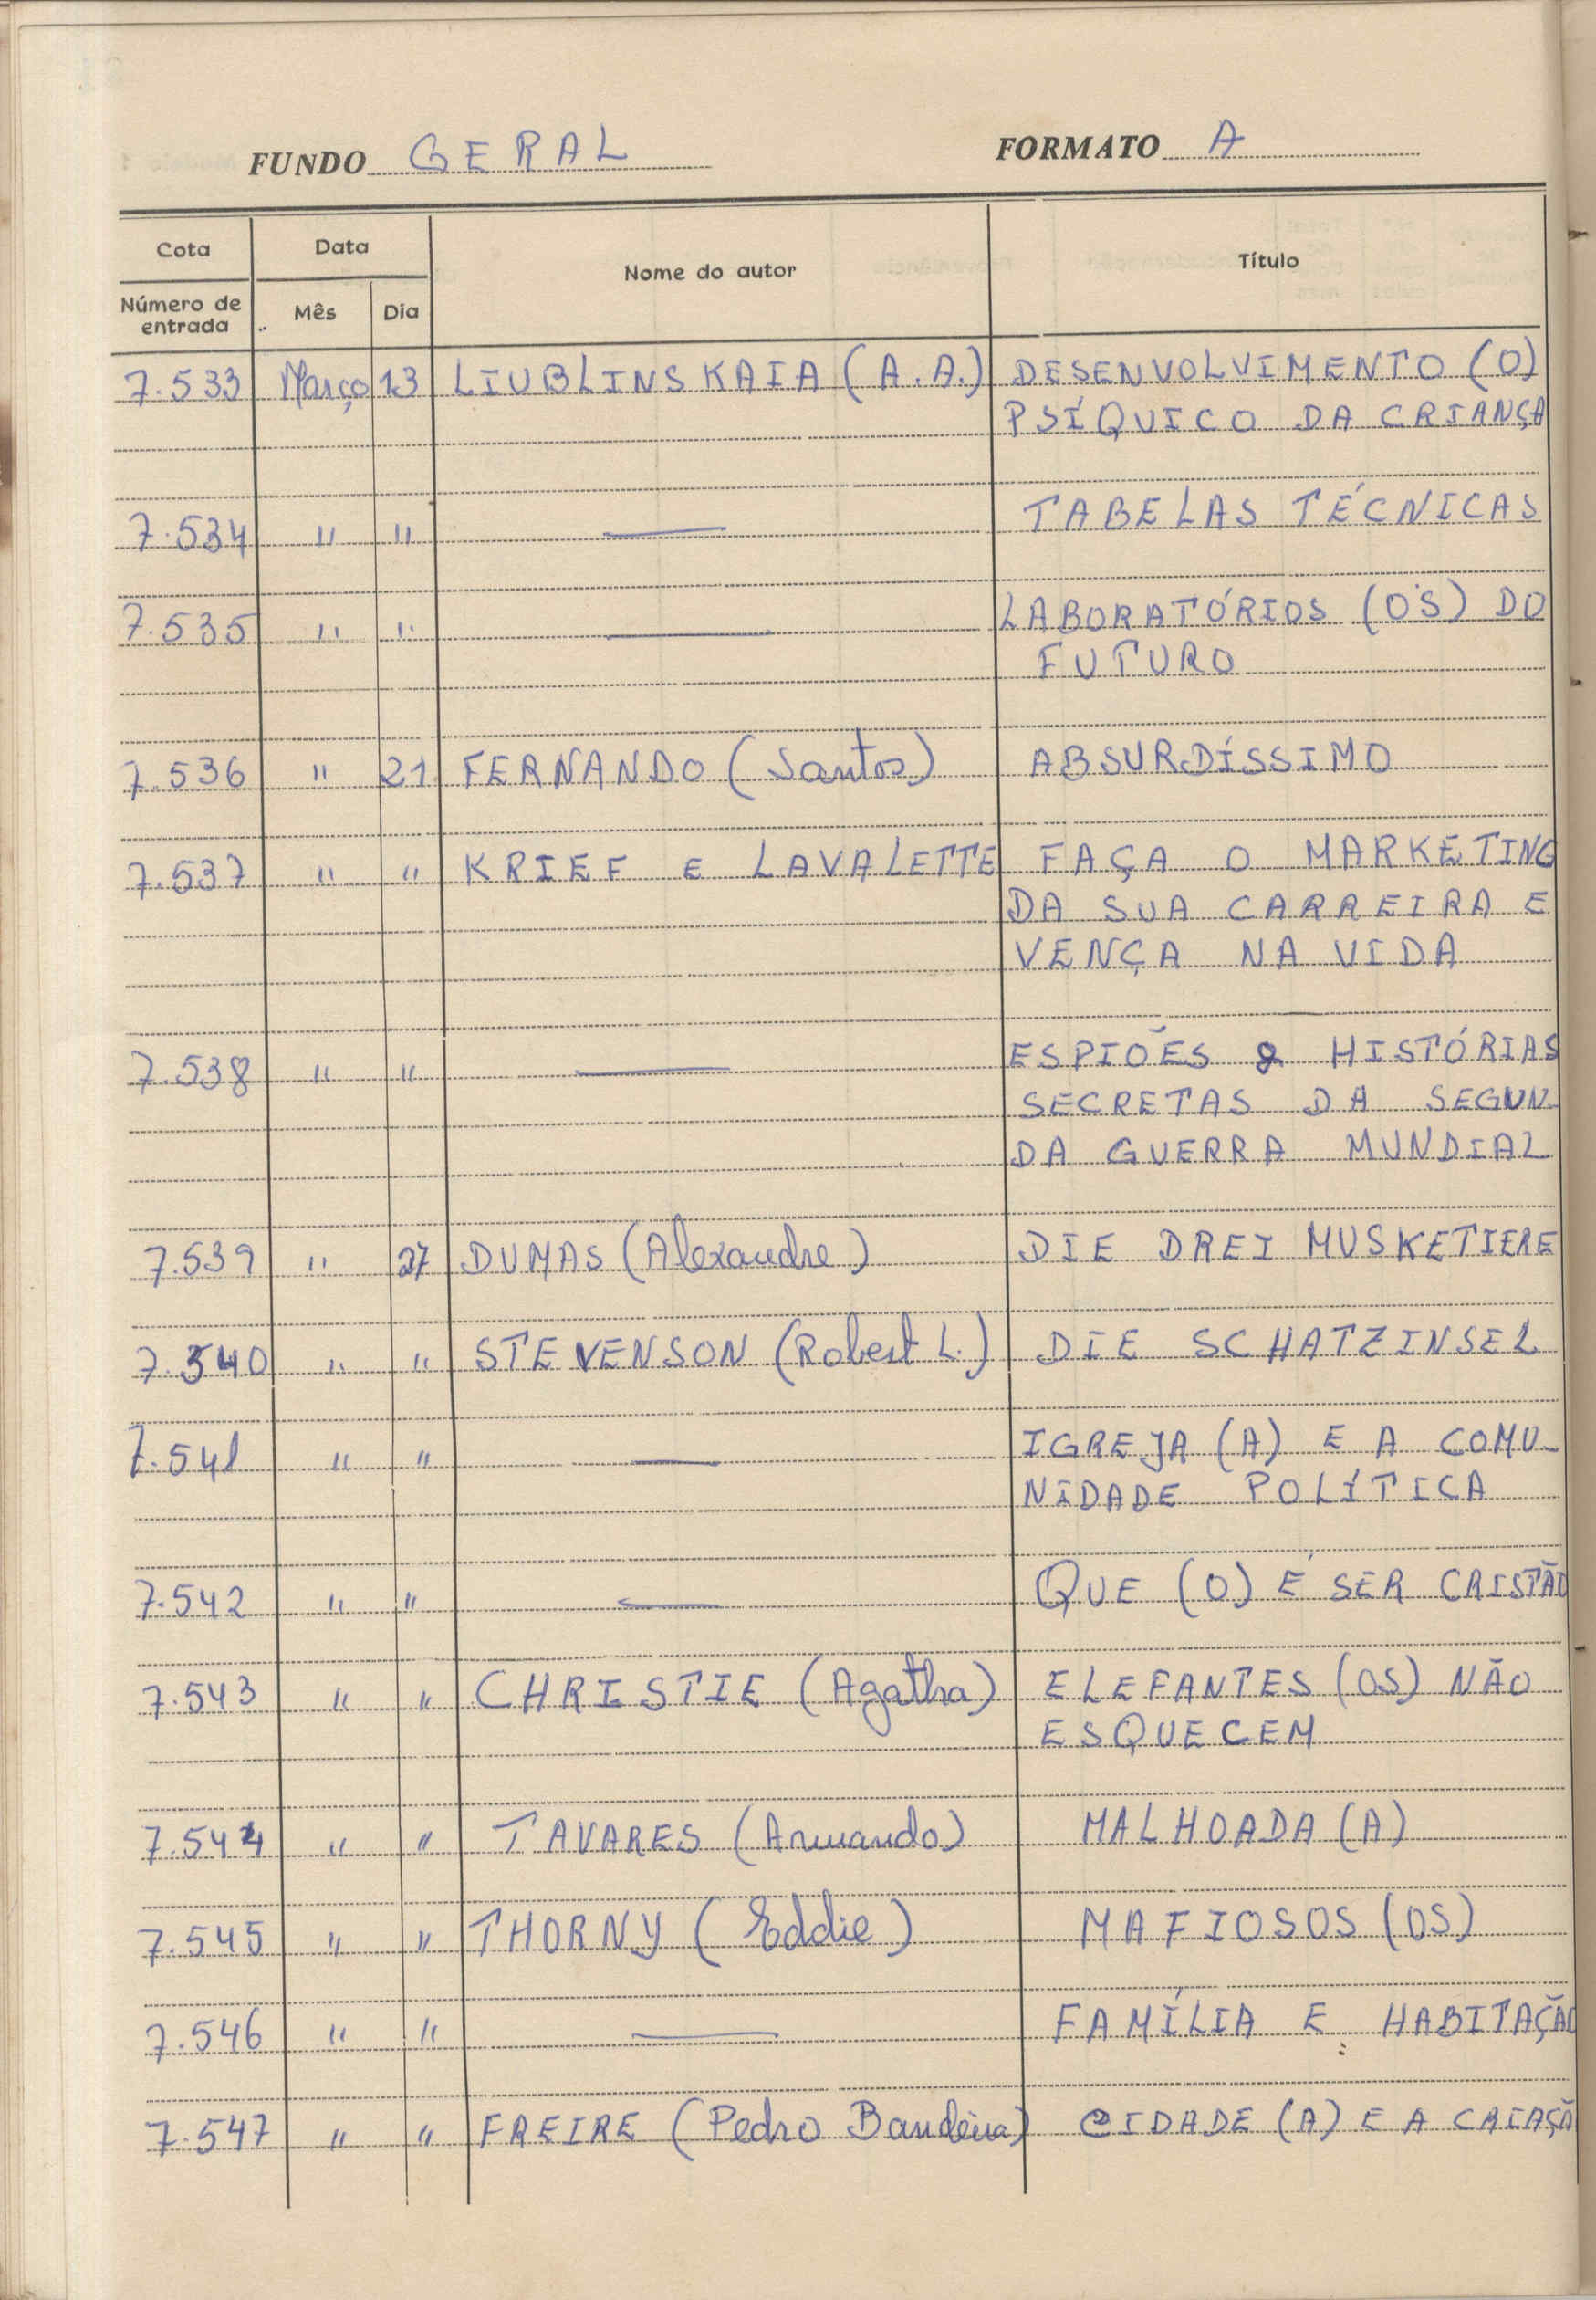 FUNDO GERAL FORMATO A
Cota Data Nome do autor Título
Número de entrada Mês Dia
7.533 Março 13 LIUBLINSKAIA (A.A.) DESENVOLVIMENTO (O)
PSÍQUICO DA CRIANÇA
7.534 " " — TABELAS TÉCNICAS
7.535 " " — LABORATÓRIOS (OS) DO
FUTURO
7.536 " 21 FERNANDO (Santos) ABSURDÍSSIMO
7.537 " " KRIEF E LAVALETTE FAÇA O MARKETING
DA SUA CARREIRA E
VENÇA NA VIDA
7.538 " " — ESPIÕES & HISTÓRIAS
SECRETAS DA SEGUN-
DA GUERRA MUNDIAL
7.539 " 27 DUMAS (Alexandre) DIE DREI MUSKETIERE
7.540 " " STEVENSON (Robert L.) DIE SCHATZINSEL
7.541 " " — IGREJA (A) E A COMU-
NIDADE POLÍTICA
7.542 " " — QUE (O) É SER CRISTÃO
7.543 " " CHRISTIE (Agatha) ELEFANTES (OS) NÃO
ESQUECEM
7.544 " " TAVARES (Armando) MALHOADA (A)
7.545 " " THORNY (Eddie) MAFIOSOS (OS)
7.546 " " — FAMÍLIA E HABITAÇÃO
7.547 " " FREIRE (Pedro Bandeira) CIDADE (A) E A CRIAÇÃ